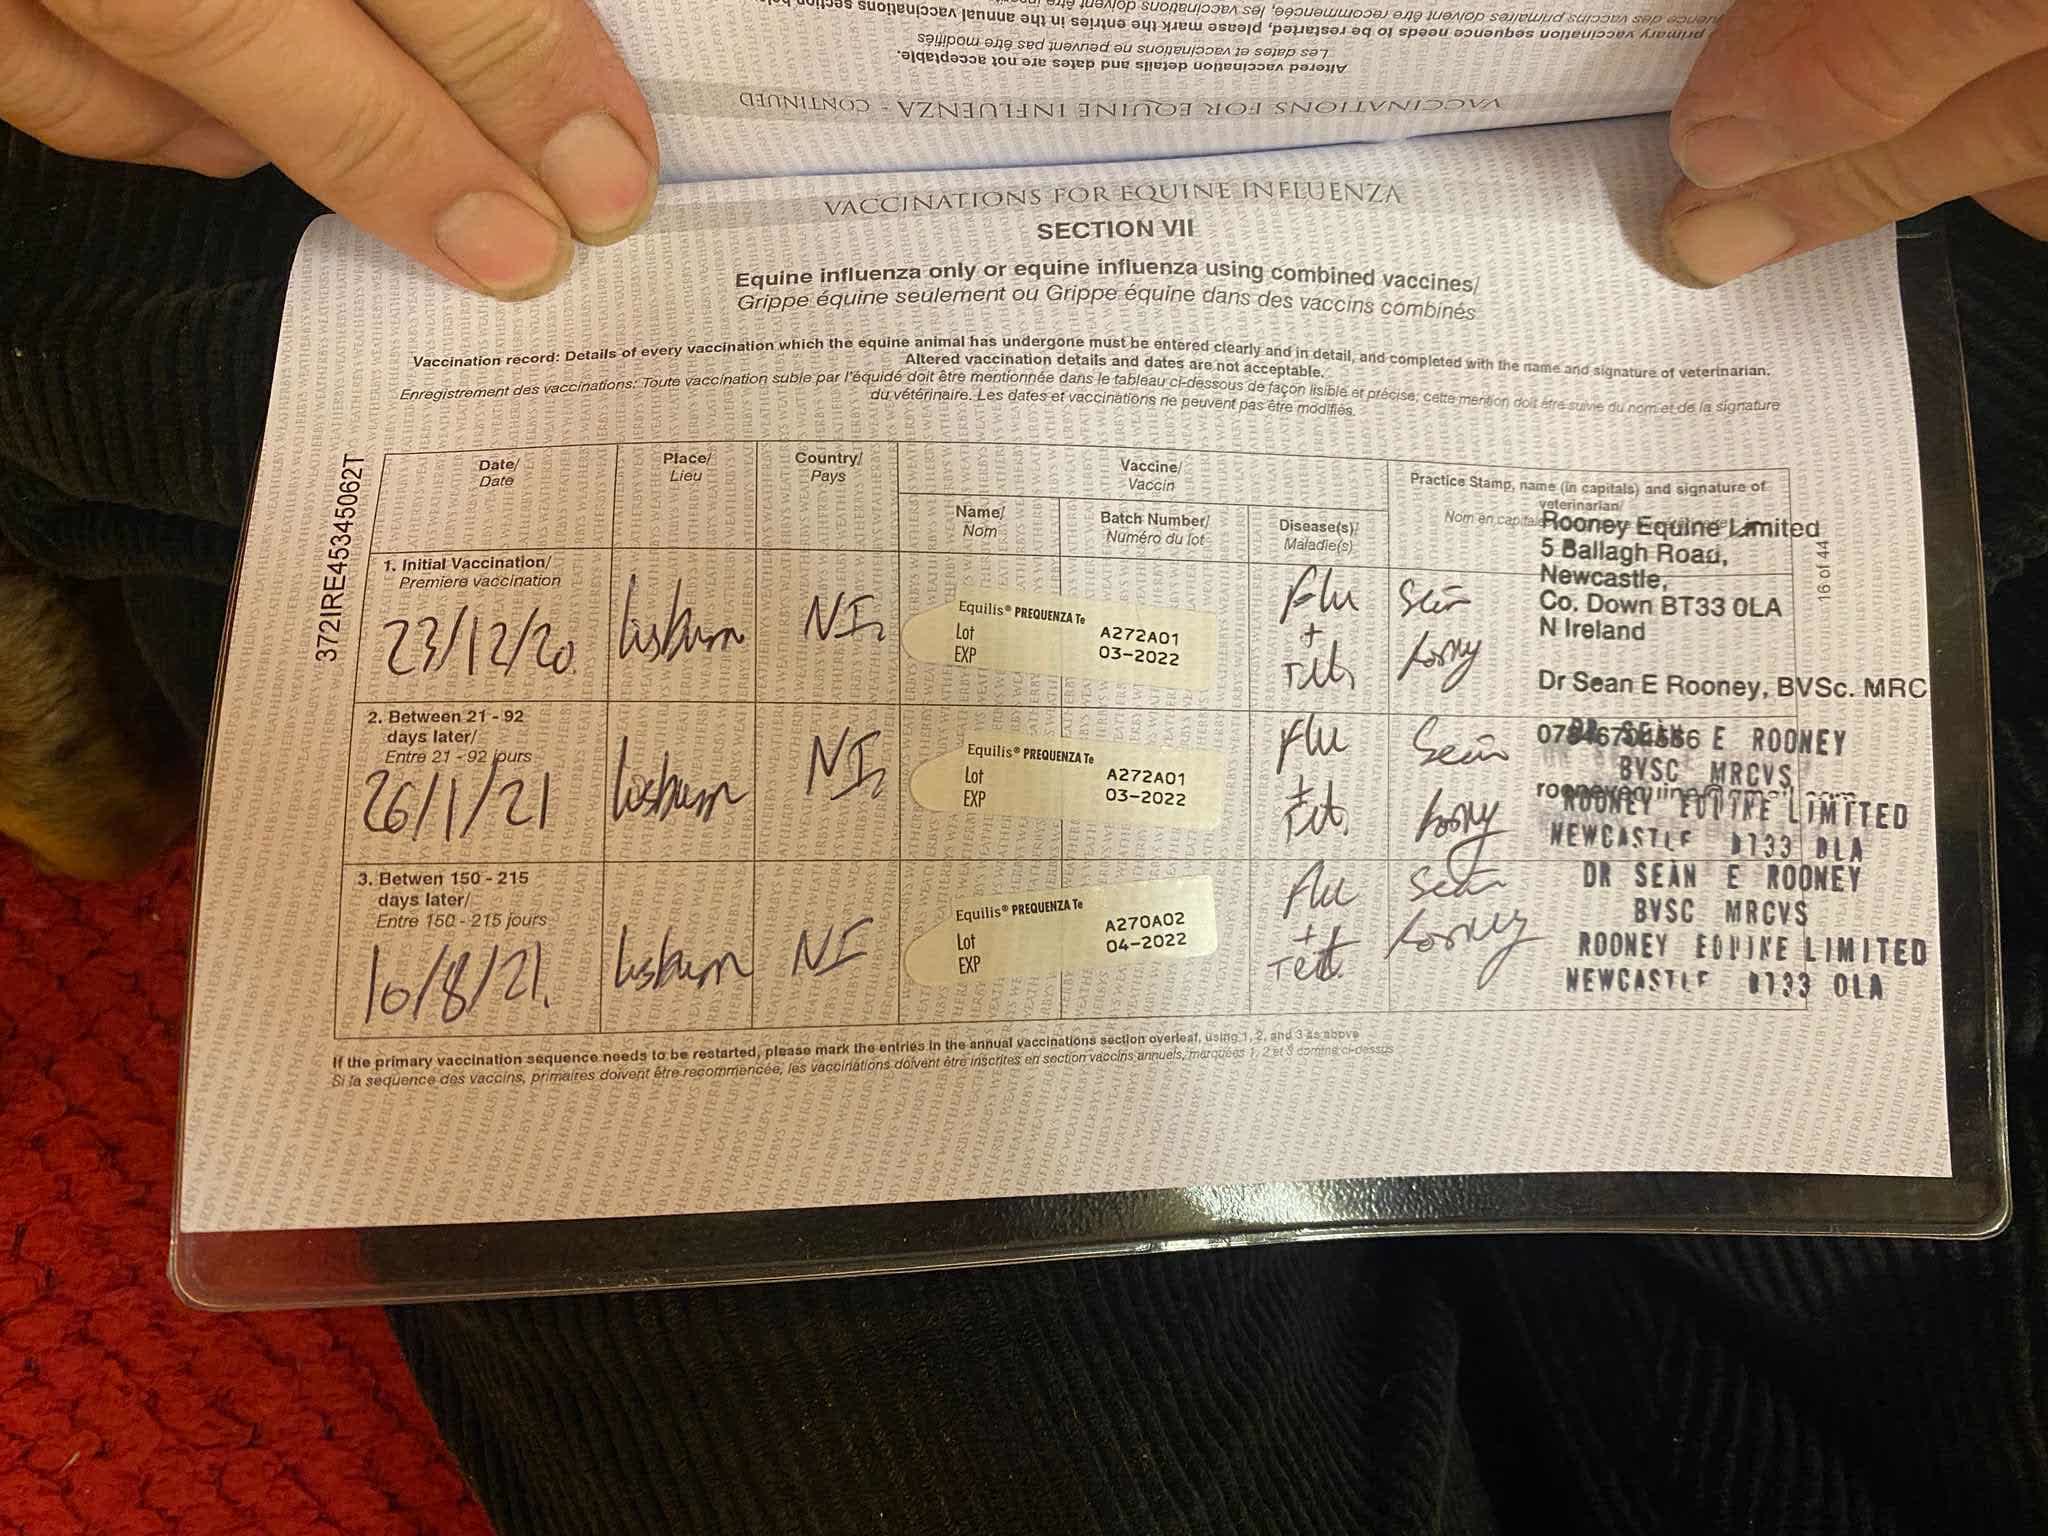 VACCINATIONS FOR EQUINE INFLUENZA - CONTINUED
Altered vaccination details and dates are not acceptable.
Les dates et vaccinations ne peuvent pas être modifiés
primary vaccination sequence needs to be restarted, please mark the entries in the annual vaccinations section
des vaccins primaires doivent être recommencée, les vaccinations doivent être
VACCINATIONS FOR EQUINE INFLUENZA
SECTION VII
Equine influenza only or equine influenza using combined vaccines/
Grippe équine seulement ou Grippe équine dans des vaccins combinés
Vaccination record: Details of every vaccination which the equine animal has undergone must be entered clearly and in detail, and completed with the name and signature of veterinarian.
Altered vaccination details and dates are not acceptable.
Enregistrement des vaccinations: Toute vaccination subie par l'équidé doit être mentionnée dans le tableau ci-dessous de façon lisible et précise; cette mention doit être suivie du nom et de la signature
du vétérinaire. Les dates et vaccinations ne peuvent pas être modifiés.
372IRE45345062T
16 of 44
Date/
Date
Place/
Lieu
Country/
Pays
Vaccine/
Vaccin
Name/
Nom
Batch Number/
Numéro du lot
Disease(s)/
Maladie(s)
Practice Stamp, name (in capitals) and signature of
veterinarian/
Nom en
Rooney Equine Limited
5 Ballagh Road,
Newcastle,
Co. Down BT33 0LA
N Ireland
Dr Sean E Rooney, BVSc. MRC
1. Initial Vaccination/
Premiere vaccination
23/12/20
Lisburn
NI
Equilis® PREQUENZA Te
Lot A272A01
EXP 03-2022
Flu
+
Tet
Seán
Rooney
2. Between 21 - 92
days later/
Entre 21 - 92 jours
26/1/21
Lisburn
NI
Equilis® PREQUENZA Te
Lot A272A01
EXP 03-2022
Flu
+
Tet
Seán
Rooney
DR SEÀN E ROONEY
BVSC MRCVS
ROONEY EQUINE LIMITED
NEWCASTLE BT33 0LA
3. Betwen 150 - 215
days later/
Entre 150 - 215 jours
10/8/21
Lisburn
NI
Equilis® PREQUENZA Te
Lot A270A02
EXP 04-2022
Flu
+
Tet
Seán
Rooney
DR SEÀN E ROONEY
BVSC MRCVS
ROONEY EQUINE LIMITED
NEWCASTLE BT33 0LA
If the primary vaccination sequence needs to be restarted, please mark the entries in the annual vaccinations section overleaf, using 1, 2, and 3 as above
Si la sequence des vaccins, primaires doivent être recommencée, les vaccinations doivent être inscrites en section vaccins annuels, marquées 1, 2 et 3 comme ci-dessus